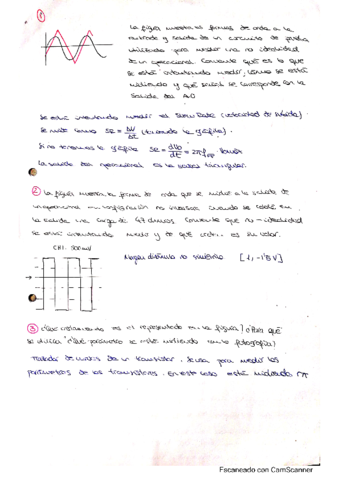 ①
La figura muestra las formas de onda a la
entrada y salida de un circuito de prueba
utilizado para medir una no idealidad
de un operacional. Comente qué es lo que
se está intentando medir, cómo se está
midiendo y qué señal se corresponde con la
salida del A.O
Se está intentando medir el Slew Rate (velocidad de subida).
Se mide como SR = ΔV/Δt (usando la gráfica).
Si no tenemos la gráfica SR = dVo/dt = 2πf
La salida del operacional es la señal triangular.
② La figura muestra la forma de onda que se midió a la salida de
un operacional en configuración no inversora cuando se colocó en
la salida una carga de 47 ohmios. Comente que no-idealidad
se está intentando medir y de qué es su valor.
CH1. 500mV
Margen dinámico no simétrico [1, -1'5 V]
③ ¿Qué instrumento es el representado en la figura? ¿Para qué
se utiliza? ¿Qué parámetro se está midiendo en la fotografía?
Trazador de curvas de un transistor, se usa para medir los
parámetros de los transistores. En este caso está midiendo rπ
Escaneado con CamScanner